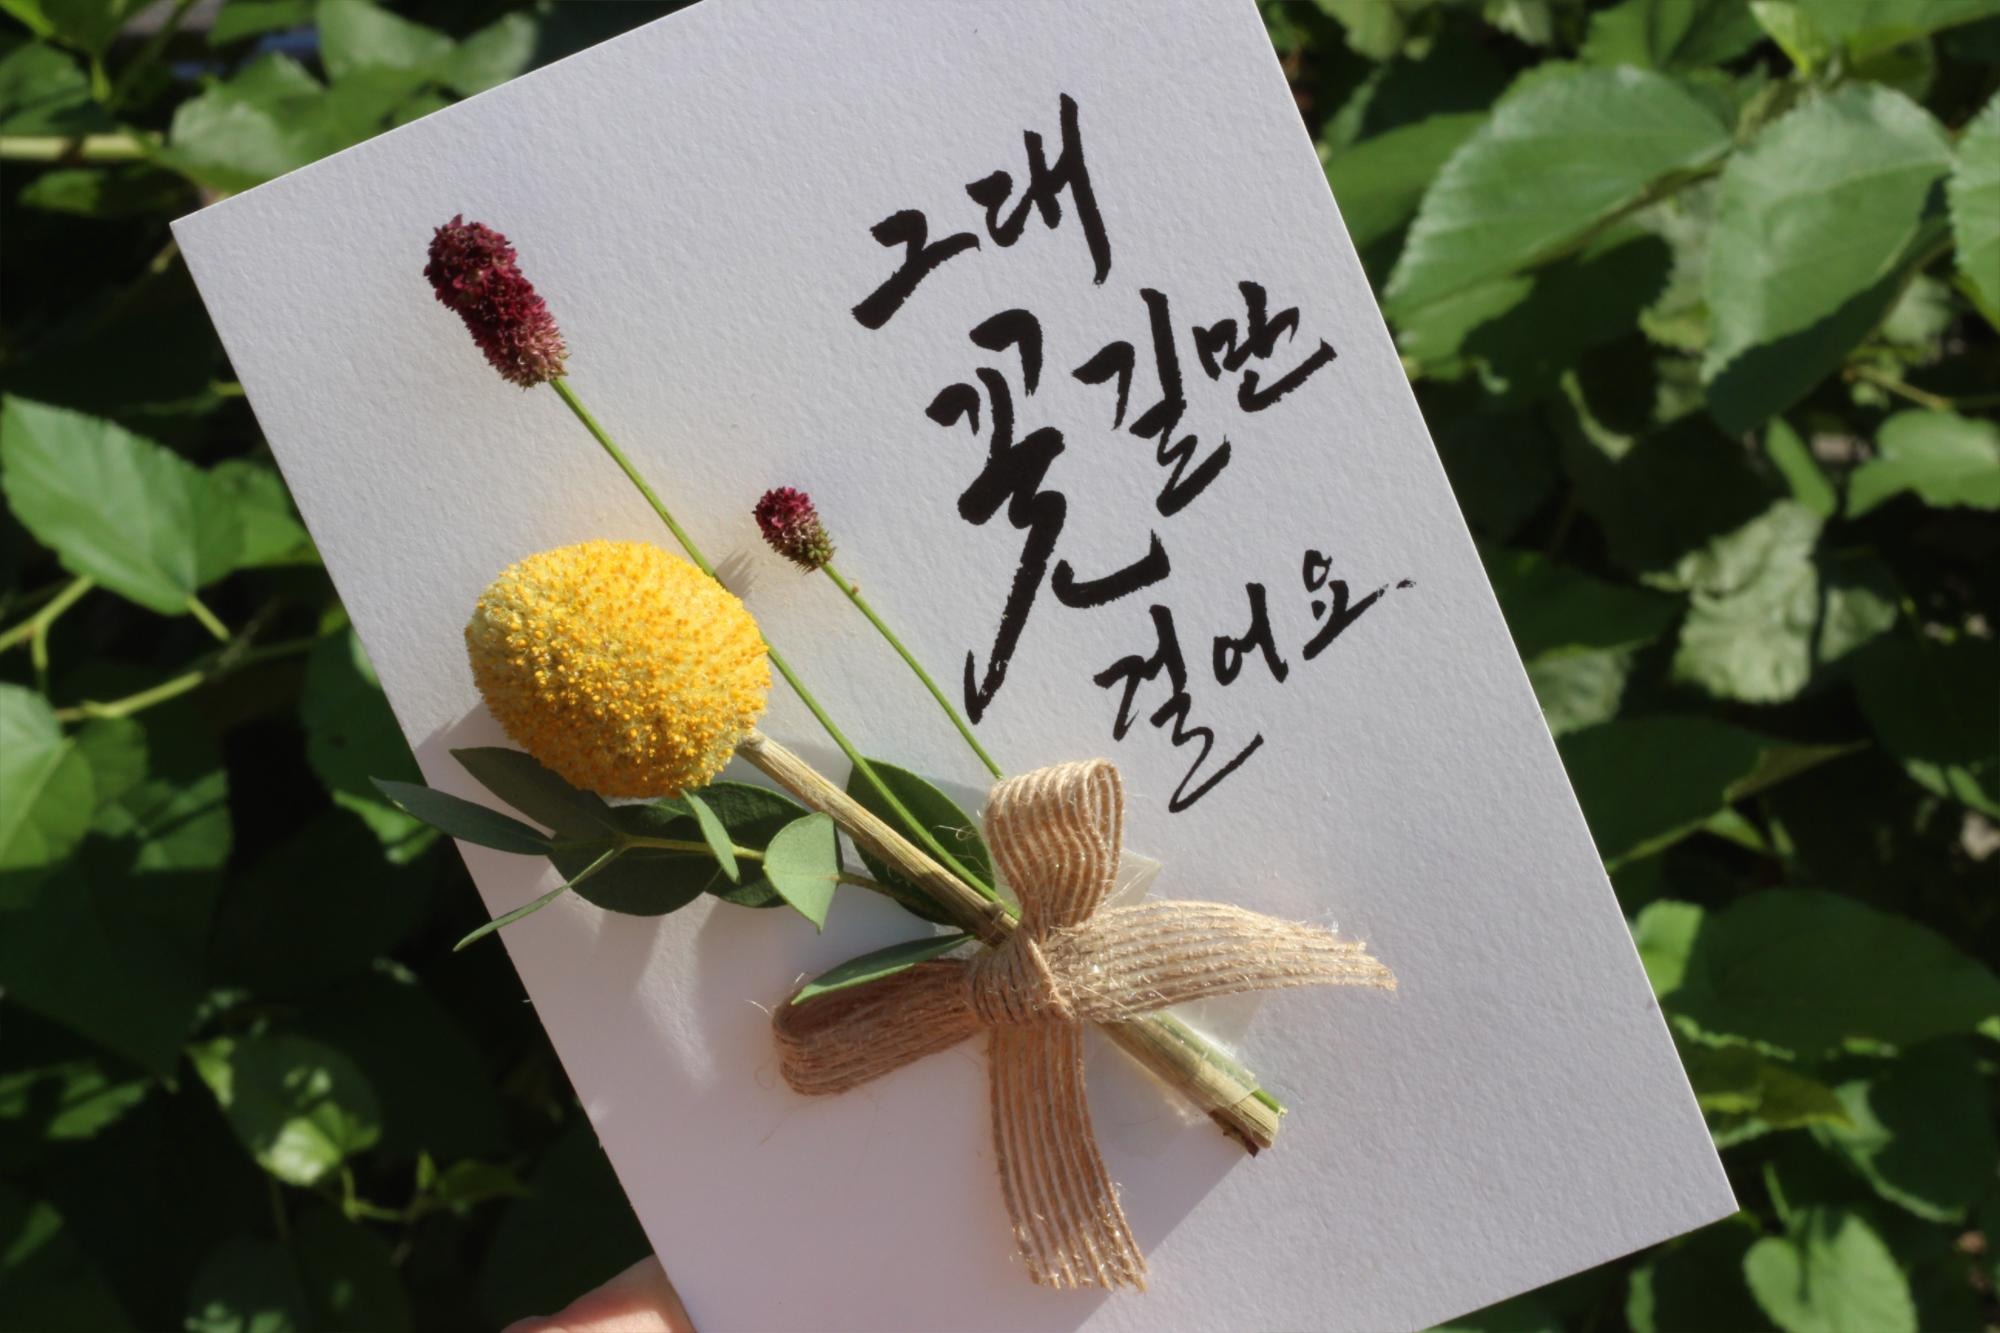 그대
꽃길만
걸어요.